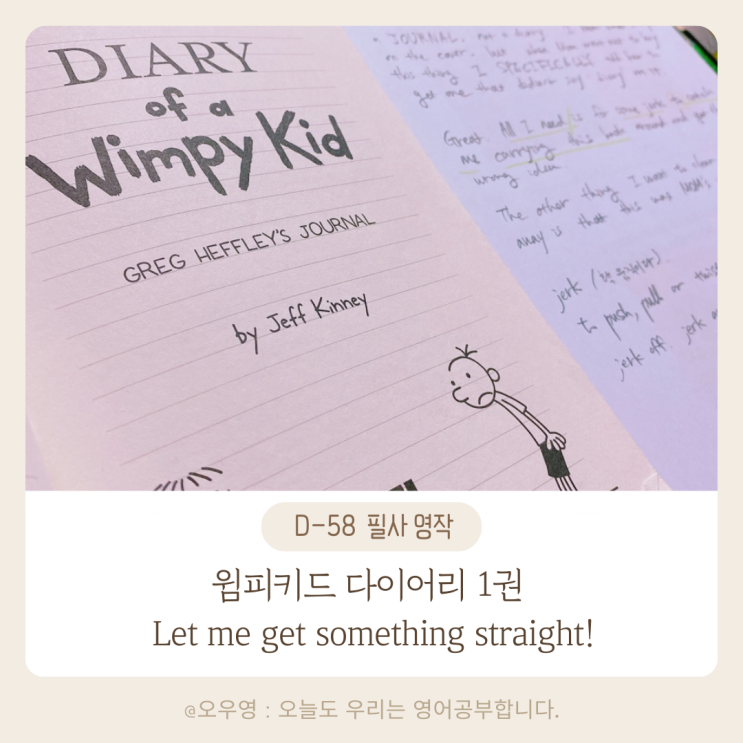 DIARY
of a
Wimpy Kid
GREG HEFFLEY'S JOURNAL
by Jeff Kinney
JOURNAL, not a
on the cover, but when
this thing I SPECIFICALLY
get me that didn't say
Great. All I need is for some jerk to
me carrying this book around and get the
wrong idea.
The other thing I want to clear
away is that this was MOM's
jerk
to push, pull or
jerk off. jerk
D-58 필사 명작
윔피키드 다이어리 1권
Let me get something straight!
@오우영 : 오늘도 우리는 영어공부합니다.